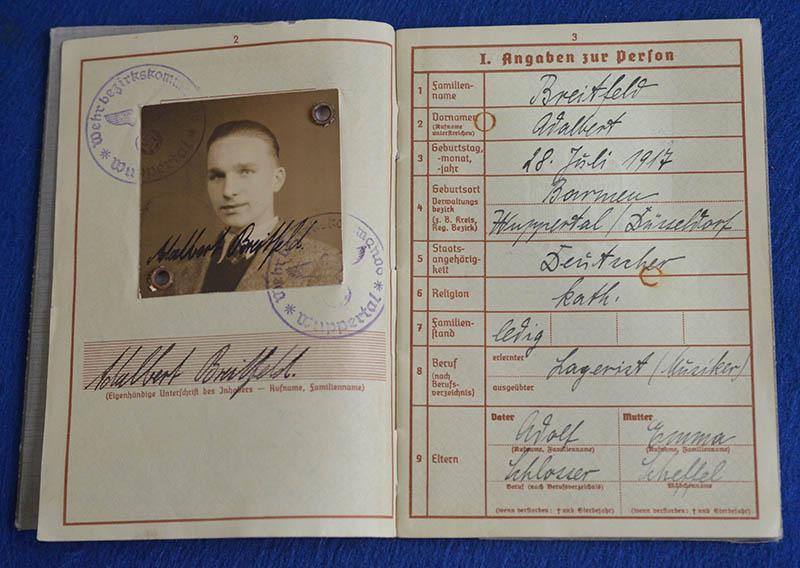 2
Wehrbezirkskomm
Wuppertal
Adalbert Breitfeld.
Wuppertal
Adalbert Breitfeld.
(Eigenhändige Unterschrift des Inhabers — Rufname, Familienname)
3
I. Angaben zur Person
1 Familien-
name
Breitfeld
2 Vornamen
(Rufname
unterstreichen)
Adalbert
3 Geburtstag,
-monat,
-jahr
28. Juli 1917
4 Geburtsort
Verwaltungs
bezirk
(z. B. Kreis,
Reg. Bezirk)
Barmen
Wuppertal / Düsseldorf
5 Staats-
angehörig-
keit
Deutscher
6 Religion
kath.
7 Familien-
stand
ledig
8 Beruf
(nach
Berufs-
verzeichnis)
erlernter
ausgeübter
Lagerist (Musiker)
9 Eltern
Vater
Adolf
(Rufname, Familienname)
Schlosser
Beruf (nach Berufsverzeichnis)
(wenn verstorben: † und Sterbejahr)
Mutter
Emma
(Rufname, Familienname)
Scheffel
Mädchenname
(wenn verstorben: † und Sterbejahr)